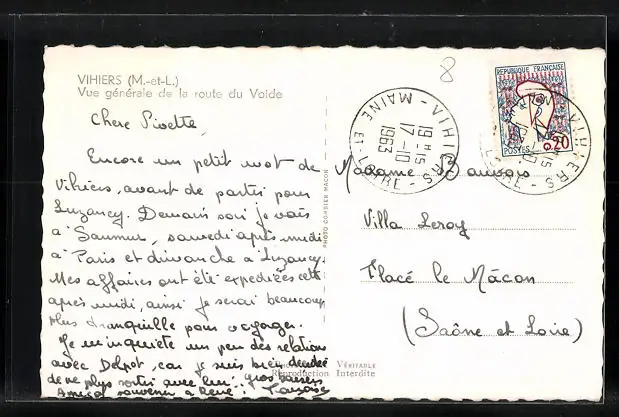 VIHIERS (M.-et-L.)
Vue générale de la route du Voide
Chère Pivette,
Encore un petit mot de
Vihiers, avant de partir pour
Luzancy. Demain soir je vais
à Saumur, samedi après midi
à Paris et dimanche à Luzancy.
Mes affaires ont été expédiées cette
après midi, ainsi je serai beaucoup
plus tranquille pour voyager.
Je m'inquiète un peu des relations
avec Delpot, car je suis bien décidée
de ne plus sortir avec lui. Gros baisers
Amical souvenir à René.
PHOTO COMBIER MACON
VÉRITABLE
Reproduction Interdite
8
VIHIERS
19 H 15
17-10
1963
MAINE ET LOIRE
RÉPUBLIQUE FRANÇAISE
POSTES
0,20
VIHIERS
Madame Beauvais
Villa Leroy
Flacé le Mâcon
(Saône et Loire)